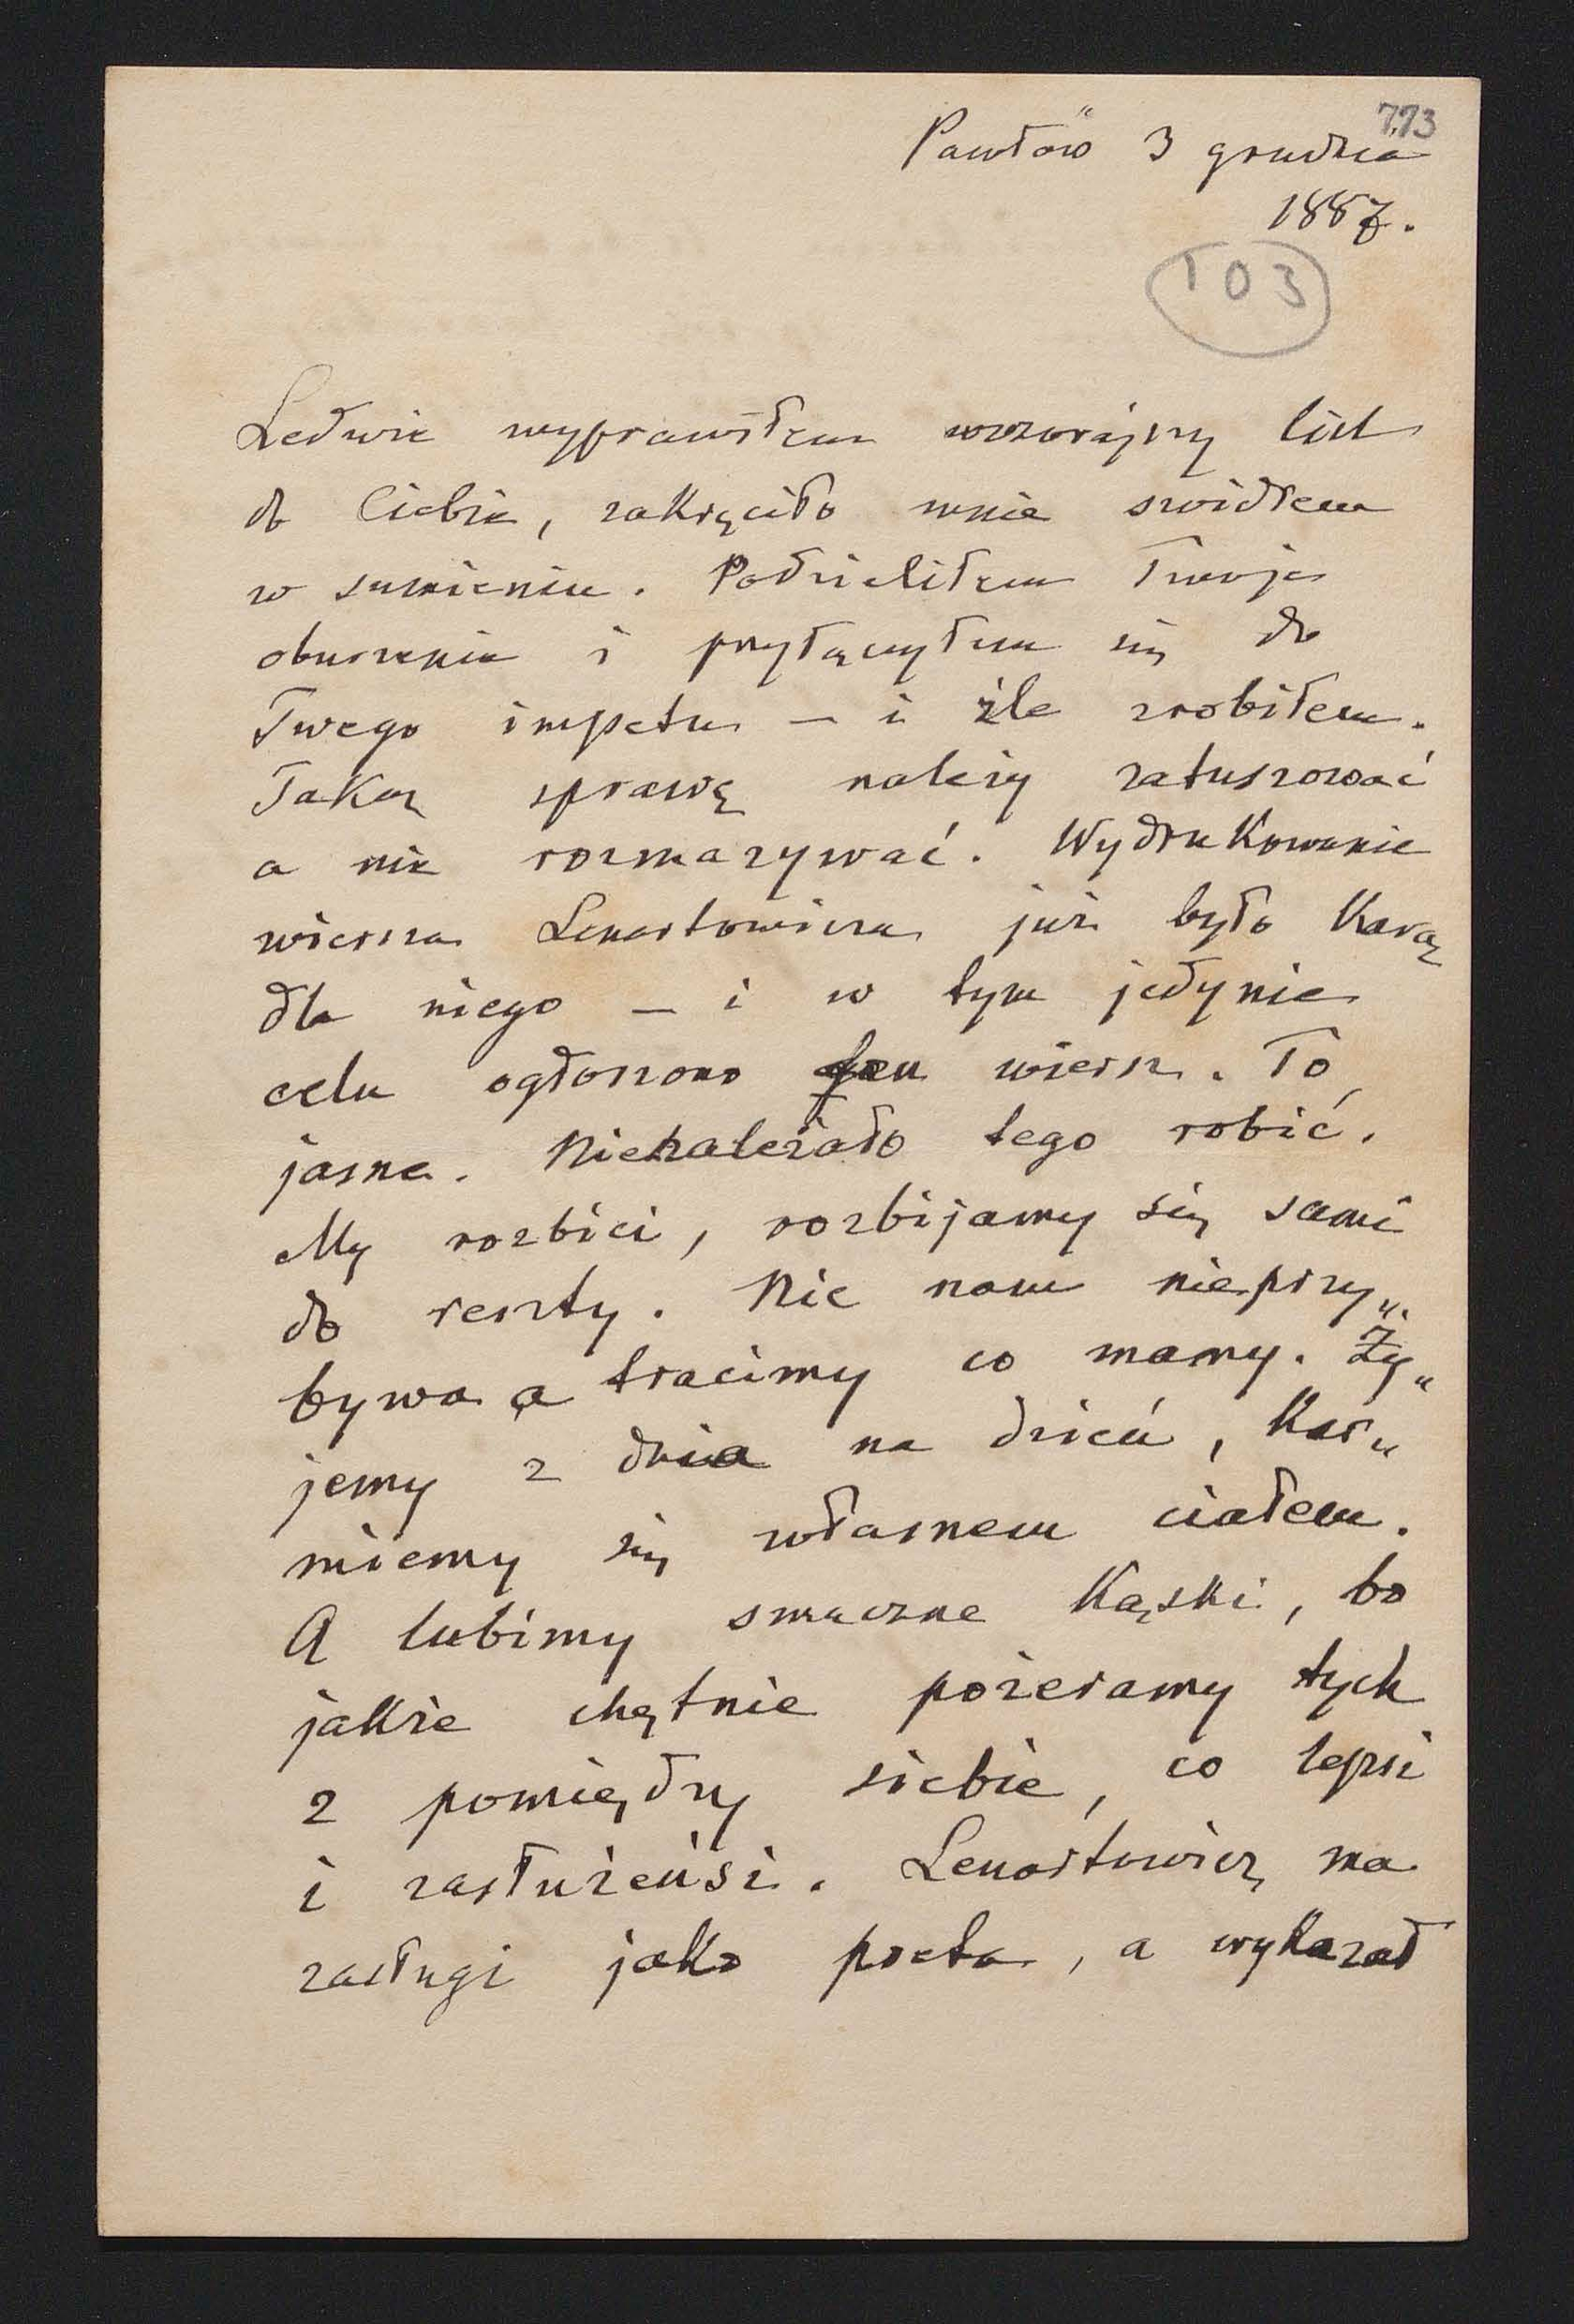 773
Pawłów 3 grudnia
1887.
103
Ledwie wyprawiłem wczorajszy list
do Ciebie, zakręciło mnie świdrem
w sumieniu. Podzieliłem Twoje
oburzenie i przyłączyłem się do
Twego impetu — i źle zrobiłem.
Taką sprawę należy zatuszować
a nie rozmazywać. Wydrukowanie
wiersza Lenartowicza już było karą
dla niego — i w tym jedynie
celu ogłoszono ten wiersz. To
jasne. Nienależało tego robić.
My rozbici, rozbijamy się sami
do reszty. Nic nam nieprzy„
bywa a tracimy co mamy. Ży„
jemy z dnia na dzień, kar„
miemy się własnem ciałem.
A lubimy smaczne kąski, bo
jakże chętnie pożeramy tych
z pomiędzy siebie, co lepsi
i zasłużeńsi. Lenartowicz ma
zasługi jako poeta, a wykazał